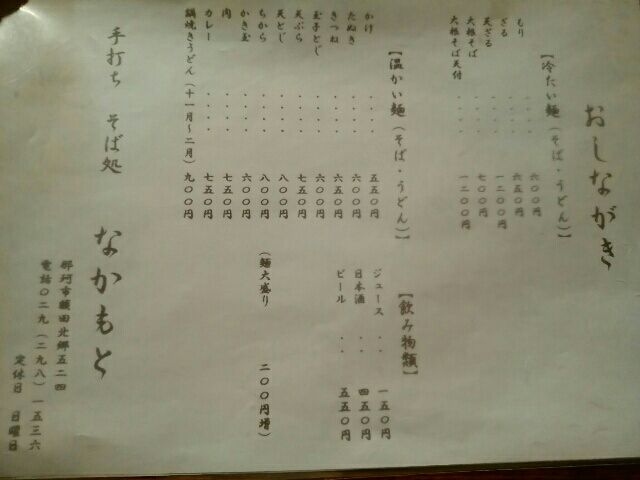 おしながき
【冷たい麺（そば・うどん）】
もり・・・・六〇〇円
ざる・・・・六五〇円
天ざる・・・・一二〇〇円
大根そば・・・・七〇〇円
大根そば天付・・・・一二〇〇円
【温かい麺（そば・うどん）】
かけ・・・・・五五〇円
たぬき・・・・・六〇〇円
きつね・・・・・六五〇円
玉子とじ・・・・・六〇〇円
天ぷら・・・・・七五〇円
天とじ・・・・・八〇〇円
ちから・・・・・八〇〇円
かき玉・・・・・六〇〇円
肉・・・・・七五〇円
カレー・・・・・七五〇円
鍋焼きうどん（十一月～二月）九〇〇円
【飲み物類】
ジュース・・一五〇円
日本酒・・四五〇円
ビール・・五五〇円
（麺大盛り 二〇〇円増）
手打ち そば処 なかもと
那珂市額田北郷五二四
電話〇二九（二九八）一五三六
定休日 日曜日